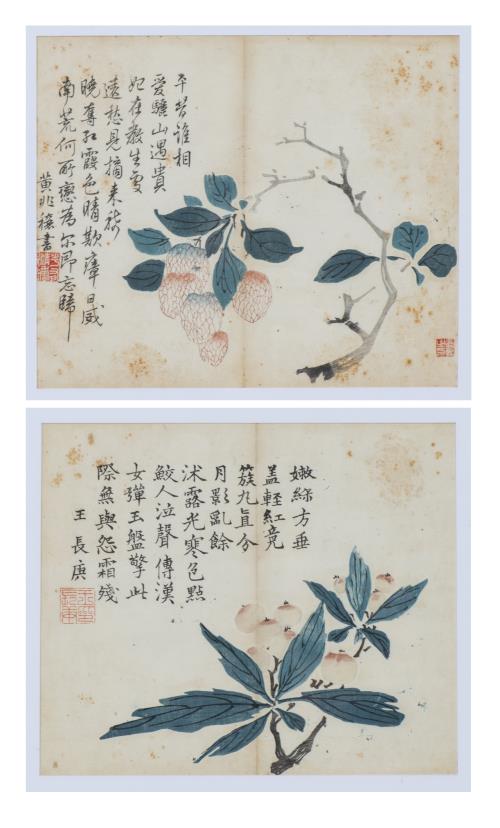 平昔誰相
愛驪山遇貴
妃枉教生處
遠愁見摘來稀
曉奪紅霞色晴欺瘴日威
南荒何所戀為尔即忘歸
黃兆穰書
嫩綠方垂
蓋輕紅竟
簇丸直分
月影亂餘
沭露光寒色點
鮫人泣聲傳漢
女彈玉盤擎此
際無與怨霜殘
王長庚